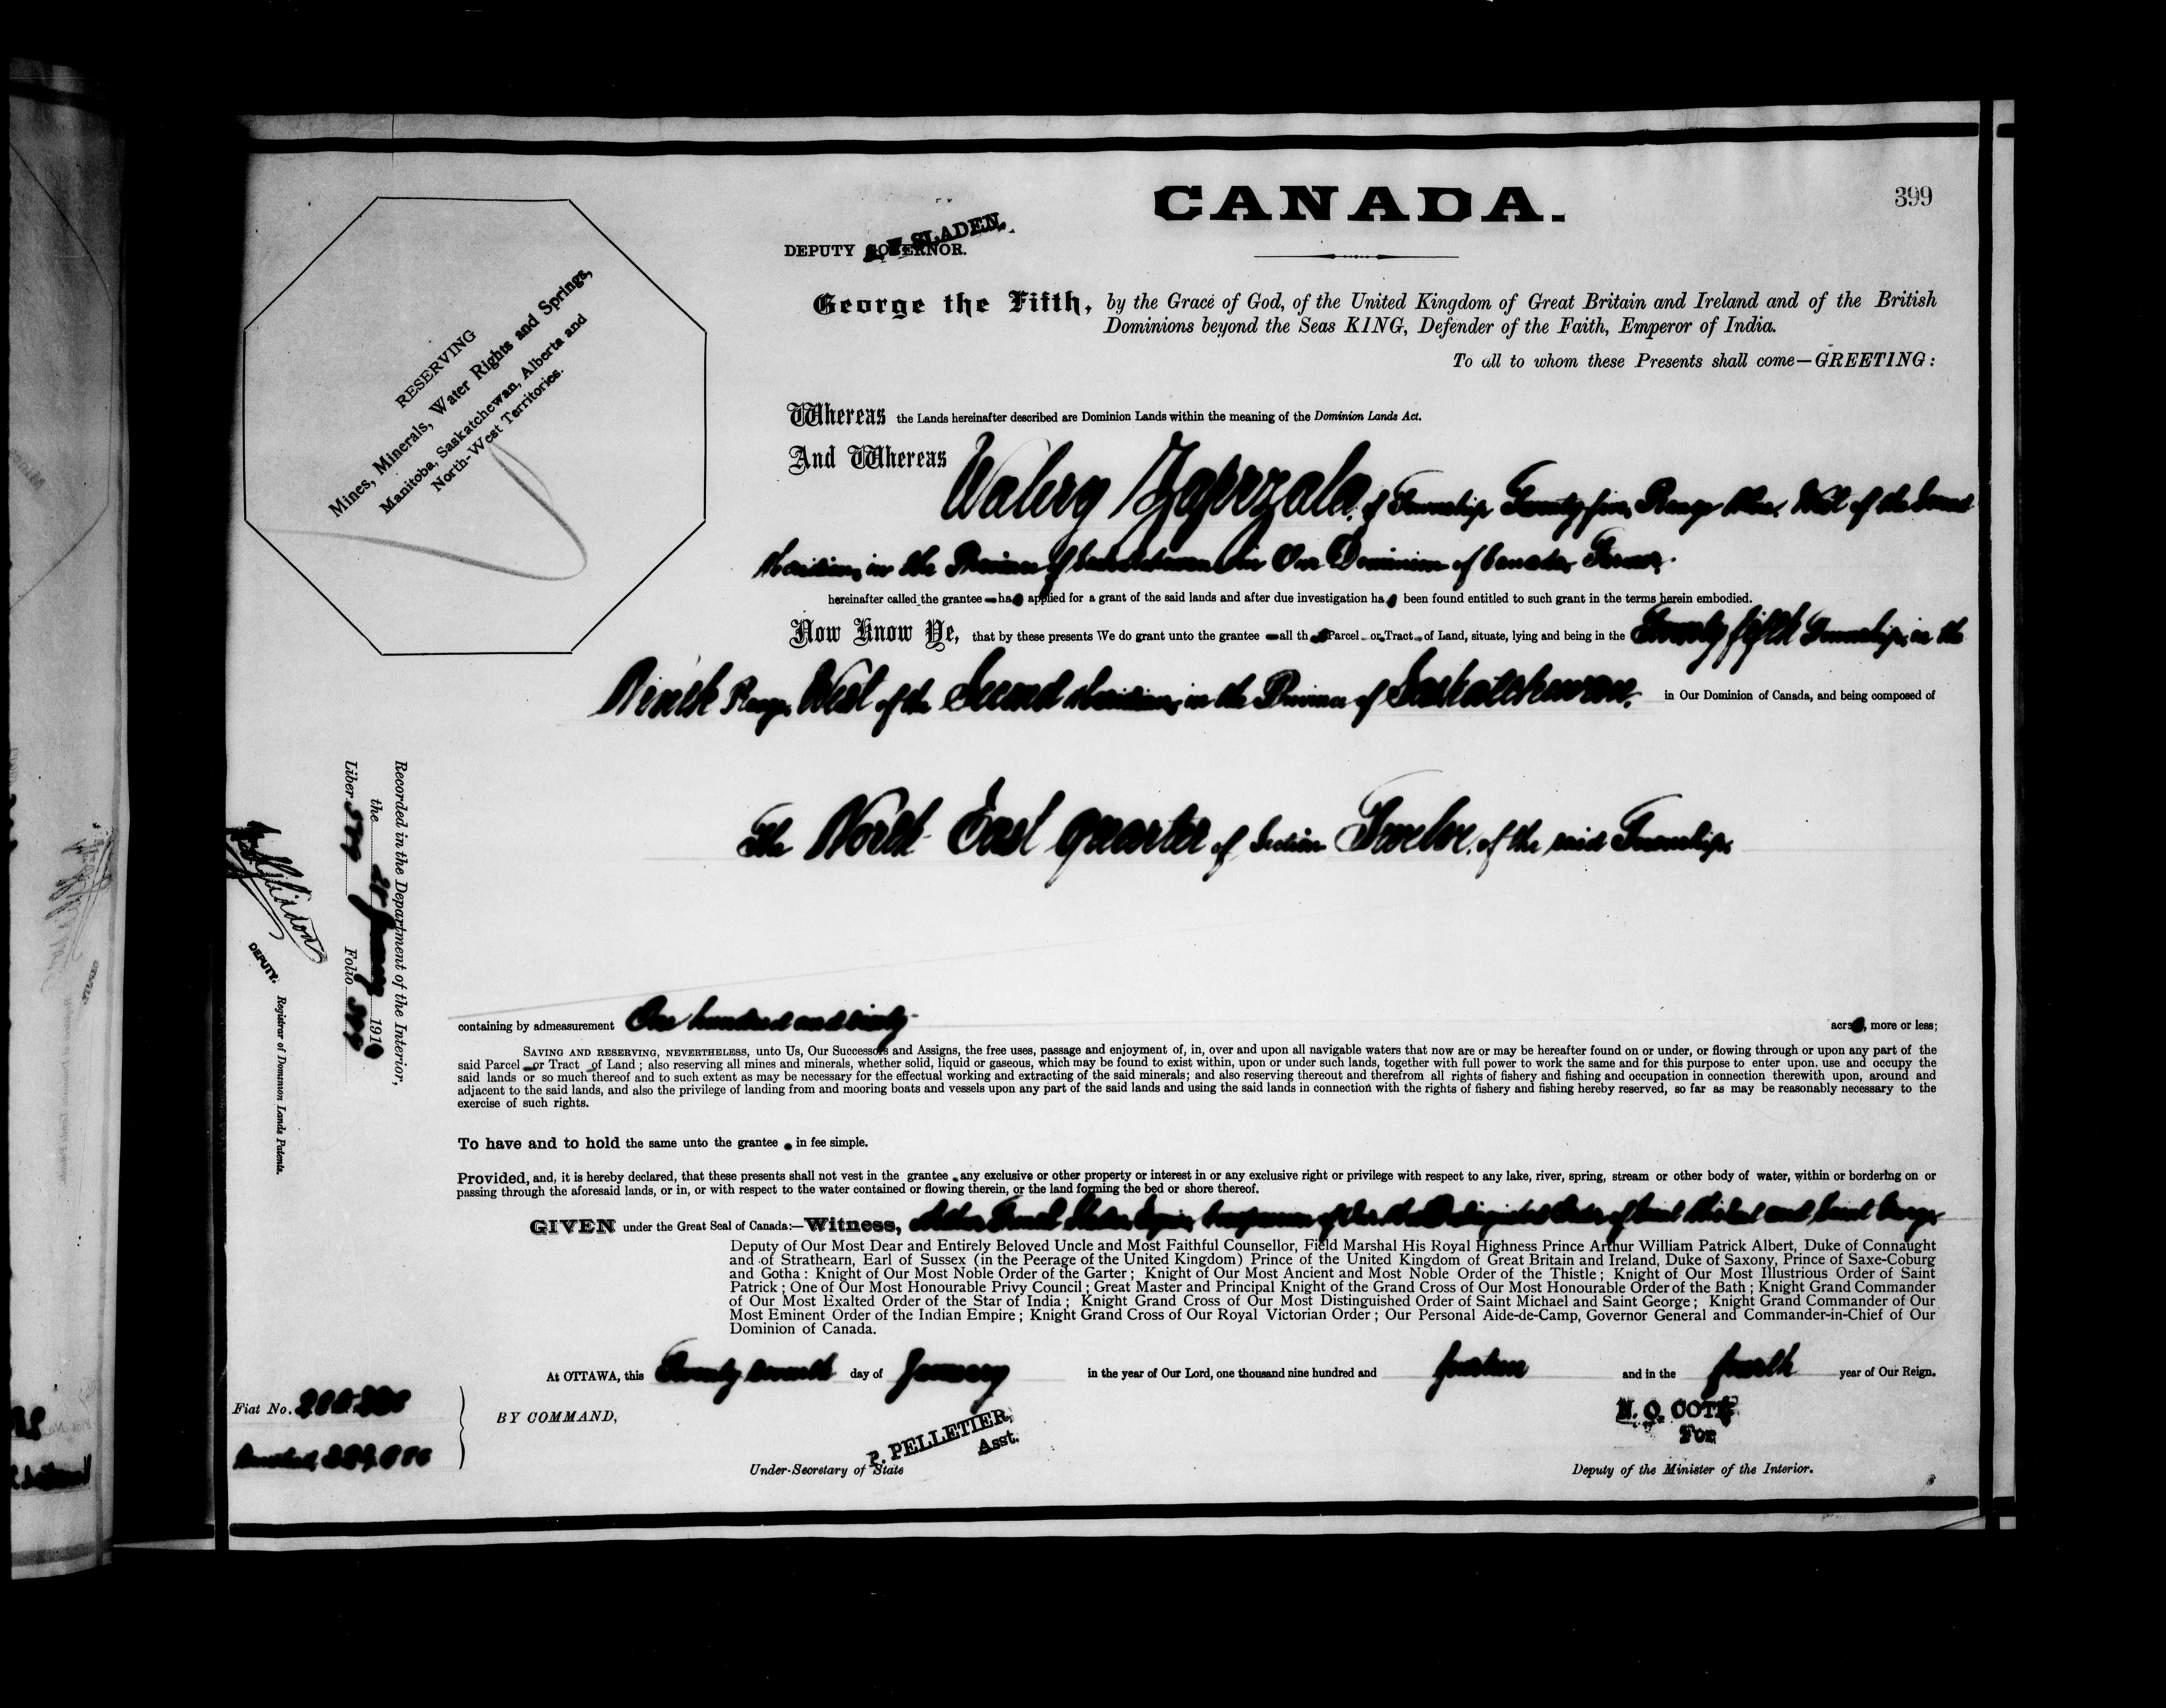 CANADA.
399
A. F. SLADEN.
DEPUTY GOVERNOR.
RESERVING
Mines, Minerals, Water Rights and Springs,
Manitoba, Saskatchewan, Alberta and
North-West Territories.
George the Fifth, by the Grace of God, of the United Kingdom of Great Britain and Ireland and of the British
Dominions beyond the Seas KING, Defender of the Faith, Emperor of India.
To all to whom these Presents shall come—GREETING:
Whereas the Lands hereinafter described are Dominion Lands within the meaning of the Dominion Lands Act.
And Whereas Walerg Zaparzala, of Township Twenty-five, Range Nine, West of the Second
Meridian, in the Province of Saskatchewan in Our Dominion of Canada, Farmer.
hereinafter called the grantee has applied for a grant of the said lands and after due investigation has been found entitled to such grant in the terms herein embodied.
Now Know Ye, that by these presents We do grant unto the grantee all that Parcel or Tract of Land, situate, lying and being in the Twenty fifth Township, in the
Ninth Range, West of the Second Meridian, in the Province of Saskatchewan, in Our Dominion of Canada, and being composed of
The North East quarter of Section Twelve, of the said Township,
Recorded in the Department of the Interior,
the 28 January 1914
Liber 579 Folio 399
DEPUTY.
Registrar of Dominion Lands Patents.
containing by admeasurement One hundred and sixty acres, more or less;
SAVING AND RESERVING, NEVERTHELESS, unto Us, Our Successors and Assigns, the free uses, passage and enjoyment of, in, over and upon all navigable waters that now are or may be hereafter found on or under, or flowing through or upon any part of the
said Parcel or Tract of Land; also reserving all mines and minerals, whether solid, liquid or gaseous, which may be found to exist within, upon or under such lands, together with full power to work the same and for this purpose to enter upon, use and occupy the
said lands or so much thereof and to such extent as may be necessary for the effectual working and extracting of the said minerals; and also reserving thereout and therefrom all rights of fishery and fishing and occupation in connection therewith upon, around and
adjacent to the said lands, and also the privilege of landing from and mooring boats and vessels upon any part of the said lands and using the said lands in connection with the rights of fishery and fishing hereby reserved, so far as may be reasonably necessary to the
exercise of such rights.
To have and to hold the same unto the grantee in fee simple.
Provided, and, it is hereby declared, that these presents shall not vest in the grantee any exclusive or other property or interest in or any exclusive right or privilege with respect to any lake, river, spring, stream or other body of water, within or bordering on or
passing through the aforesaid lands, or in, or with respect to the water contained or flowing therein, or the land forming the bed or shore thereof.
GIVEN under the Great Seal of Canada:—Witness, Arthur French Sladen, Esquire, Companion of Our Most Distinguished Order of Saint Michael and Saint George
Deputy of Our Most Dear and Entirely Beloved Uncle and Most Faithful Counsellor, Field Marshal His Royal Highness Prince Arthur William Patrick Albert, Duke of Connaught
and of Strathearn, Earl of Sussex (in the Peerage of the United Kingdom) Prince of the United Kingdom of Great Britain and Ireland, Duke of Saxony, Prince of Saxe-Coburg
and Gotha: Knight of Our Most Noble Order of the Garter; Knight of Our Most Ancient and Most Noble Order of the Thistle; Knight of Our Most Illustrious Order of Saint
Patrick; One of Our Most Honourable Privy Council; Great Master and Principal Knight of the Grand Cross of Our Most Honourable Order of the Bath; Knight Grand Commander
of Our Most Exalted Order of the Star of India; Knight Grand Cross of Our Most Distinguished Order of Saint Michael and Saint George; Knight Grand Commander of Our
Most Eminent Order of the Indian Empire; Knight Grand Cross of Our Royal Victorian Order; Our Personal Aide-de-Camp, Governor General and Commander-in-Chief of Our
Dominion of Canada.
At OTTAWA, this Twenty seventh day of January in the year of Our Lord, one thousand nine hundred and fourteen and in the fourth year of Our Reign.
Fiat No.
BY COMMAND,
P. PELLETIER,
Asst.
Under-Secretary of State
N. O. COTE
For
Deputy of the Minister of the Interior.